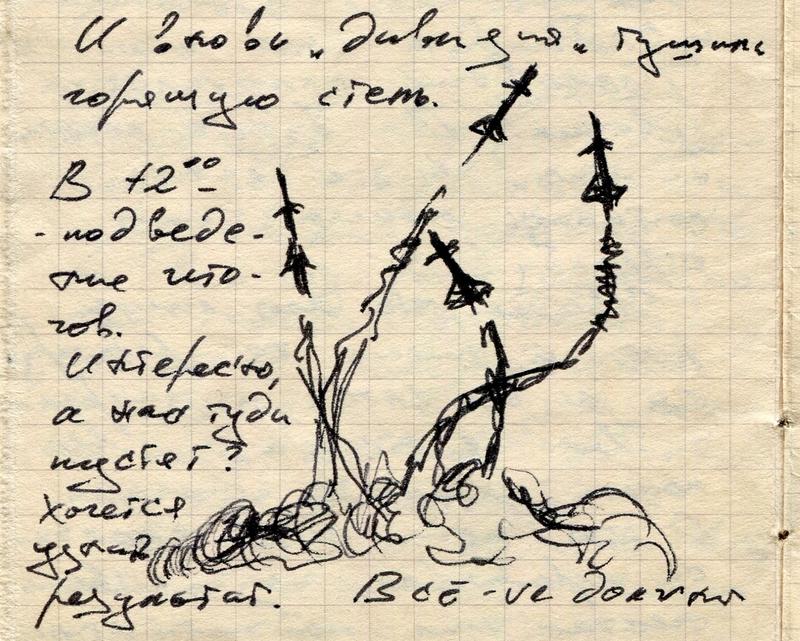 И вновь „дивизия“ тушила
горящую степь.
В 12⁰⁰
- подведе-
ние ито-
гов.
Интересно,
а нас туда
пустят?
Хочется
узнать
результат. Всё-же должны